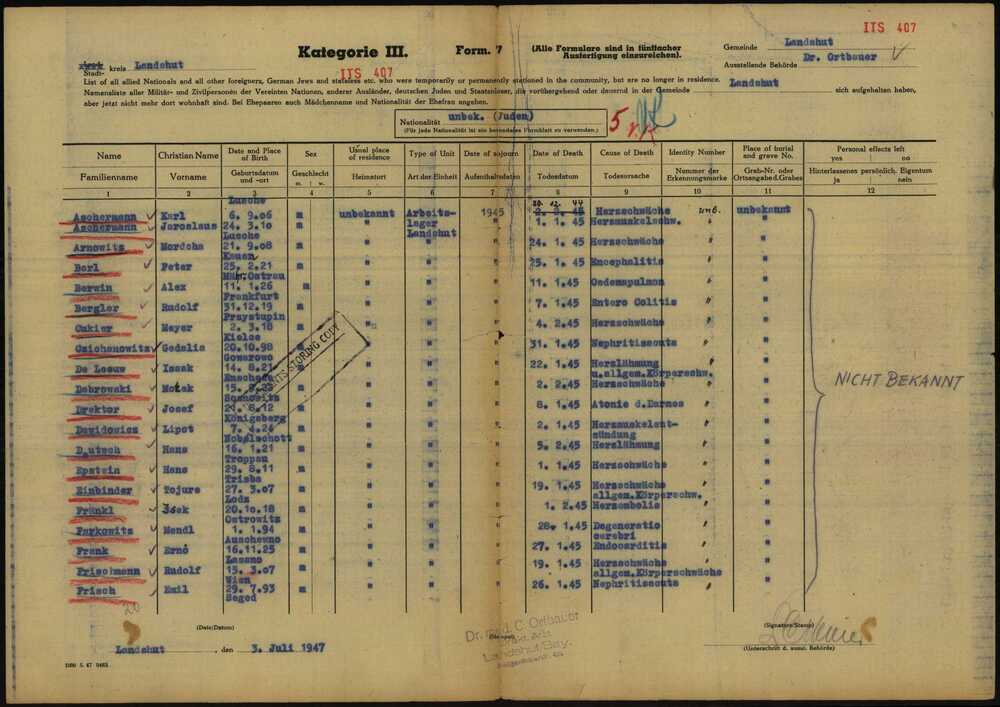 ITS 407
Kategorie III.
Form. 7
(Alle Formulare sind in fünffacher
Ausfertigung einzureichen).
Gemeinde Landshut
Ausstellende Behörde Dr. Ortbauer
Stadt- kreis Landshut
ITS 407
List of all allied Nationals and all other foreigners, German Jews and stateless etc. who were temporarily or permanently stationed in the community, but are no longer in residence.
Namensliste aller Militär- und Zivilpersonen der Vereinten Nationen, anderer Ausländer, deutschen Juden und Staatenloser, die vorübergehend oder dauernd in der Gemeinde Landshut sich aufgehalten haben,
aber jetzt nicht mehr dort wohnhaft sind. Bei Ehepaaren auch Mädchenname und Nationalität der Ehefrau angeben.
Nationalität unbek. (Juden)
(Für jede Nationalität ist ein besonderes Formblatt zu verwenden.)
5
Name Christian Name Date and Place of Birth Sex Usual place of residence Type of Unit Date of sojourn Date of Death Cause of Death Identity Number Place of burial and grave No. Personal effects left yes no
Familienname Vorname Geburtsdatum und -ort Geschlecht m. w. Heimatort Art der Einheit Aufenthaltsdaten Todesdatum Todesursache Nummer der Erkennungsmarke Grab-Nr. oder Ortsangabe d. Grabes Hinterlassenes persönlich. Eigentum ja nein
1 2 3 4 5 6 7 8 9 10 11 12
Lusche 30. 12. 44
Aschermann Karl 6. 9.06 m unbekannt Arbeits- 1945 2. 2. 45 Herzschwäche unb. unbekannt
Aschermann Jaroslaus 24. 3.10 m " lager " 1. 1. 45 Herzmuskelschw. " "
Lusche Landshut
Arnowitz Mordcha 21. 9.08 m " " " 24. 1. 45 Herzschwäche " "
Kauen
Berl Peter 25. 2.21 m " " " 25. 1. 45 Encephalitis " "
Mähr.Ostrau
Berwin Alex 11. 1.26 m " " " 11. 1.45 Oedempulmon " "
Frankfurt
Bergler Rudolf 31.12.19 m " " " 7. 1.45 Entero Colitis " "
Praystupin
Cukier Mayer 2. 3.18 m " " " 4. 2.45 Herzschwäche " "
Kielce
Czichanowitz Gedalia 20.10.98 m " " " 31. 1.45 Nephritisacuta " "
Goworowo
De Leeuw Isaak 14. 8.21 m " " " 22. 1.45 Herzlähmung " "
Enschede u.allgem.Körperschw.
Dabrowski Motek 15. m " " " 2. 2.45 Herzschwäche " "
Sosnowitz
Drektor Josef 21. 8.12 m " " " 8. 1.45 Atonie d.Darmes " "
Königsberg
Davidowicz Lipot 7. 4.24 m " " " 2. 1.45 Herzmuskelent- " "
zündung
Deutsch Hans 16. 1.21 m " " " 5. 2.45 Herzlähmung " "
Troppau
Epstein Hans 29. 8.11 m " " " 1. 1.45 Herzschwäche " "
Einbinder Tojure 27. 3.07 m " " " 19. 1.45 Herzschwäche " "
Lodz allgem.Körperschw.
Fränkl Isek 20.10.18 m " " " 1. 2.45 Herzembolie " "
Ostrowitz
Farkowitz Mendl 1. 1.94 m " " " 28. 1.45 Degeneratio " "
cerebri
Frank Ernö 16.11.25 m " " " 27. 1.45 Endocarditis " "
Frischmann Rudolf 15. 3.07 m " " " 19. 1.45 Herzschwäche " "
Wien allgem.Körperschwäche
Frisch Emil 29. 7.93 m " " " 26. 1.45 Nephritisacuta " "
Seged
NICHT BEKANNT
ITS STORING COPY
20
(Date/Datum)
Landshut, den 3. Juli 1947
(Stempel)
Dr. med. C. Ortbauer
prakt. Arzt
Landshut/Bay.
(Signature/Stamp)
(Unterschrift d. ausst. Behörde)